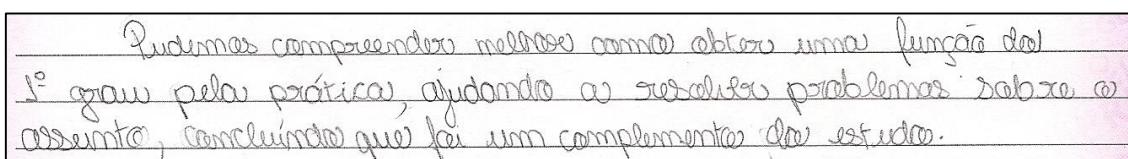 Pudemos compreender melhor como obter uma função do
1º grau pela prática, ajudando a resolver problemas sobre o
assunto, concluindo que foi um complemento do estudo.